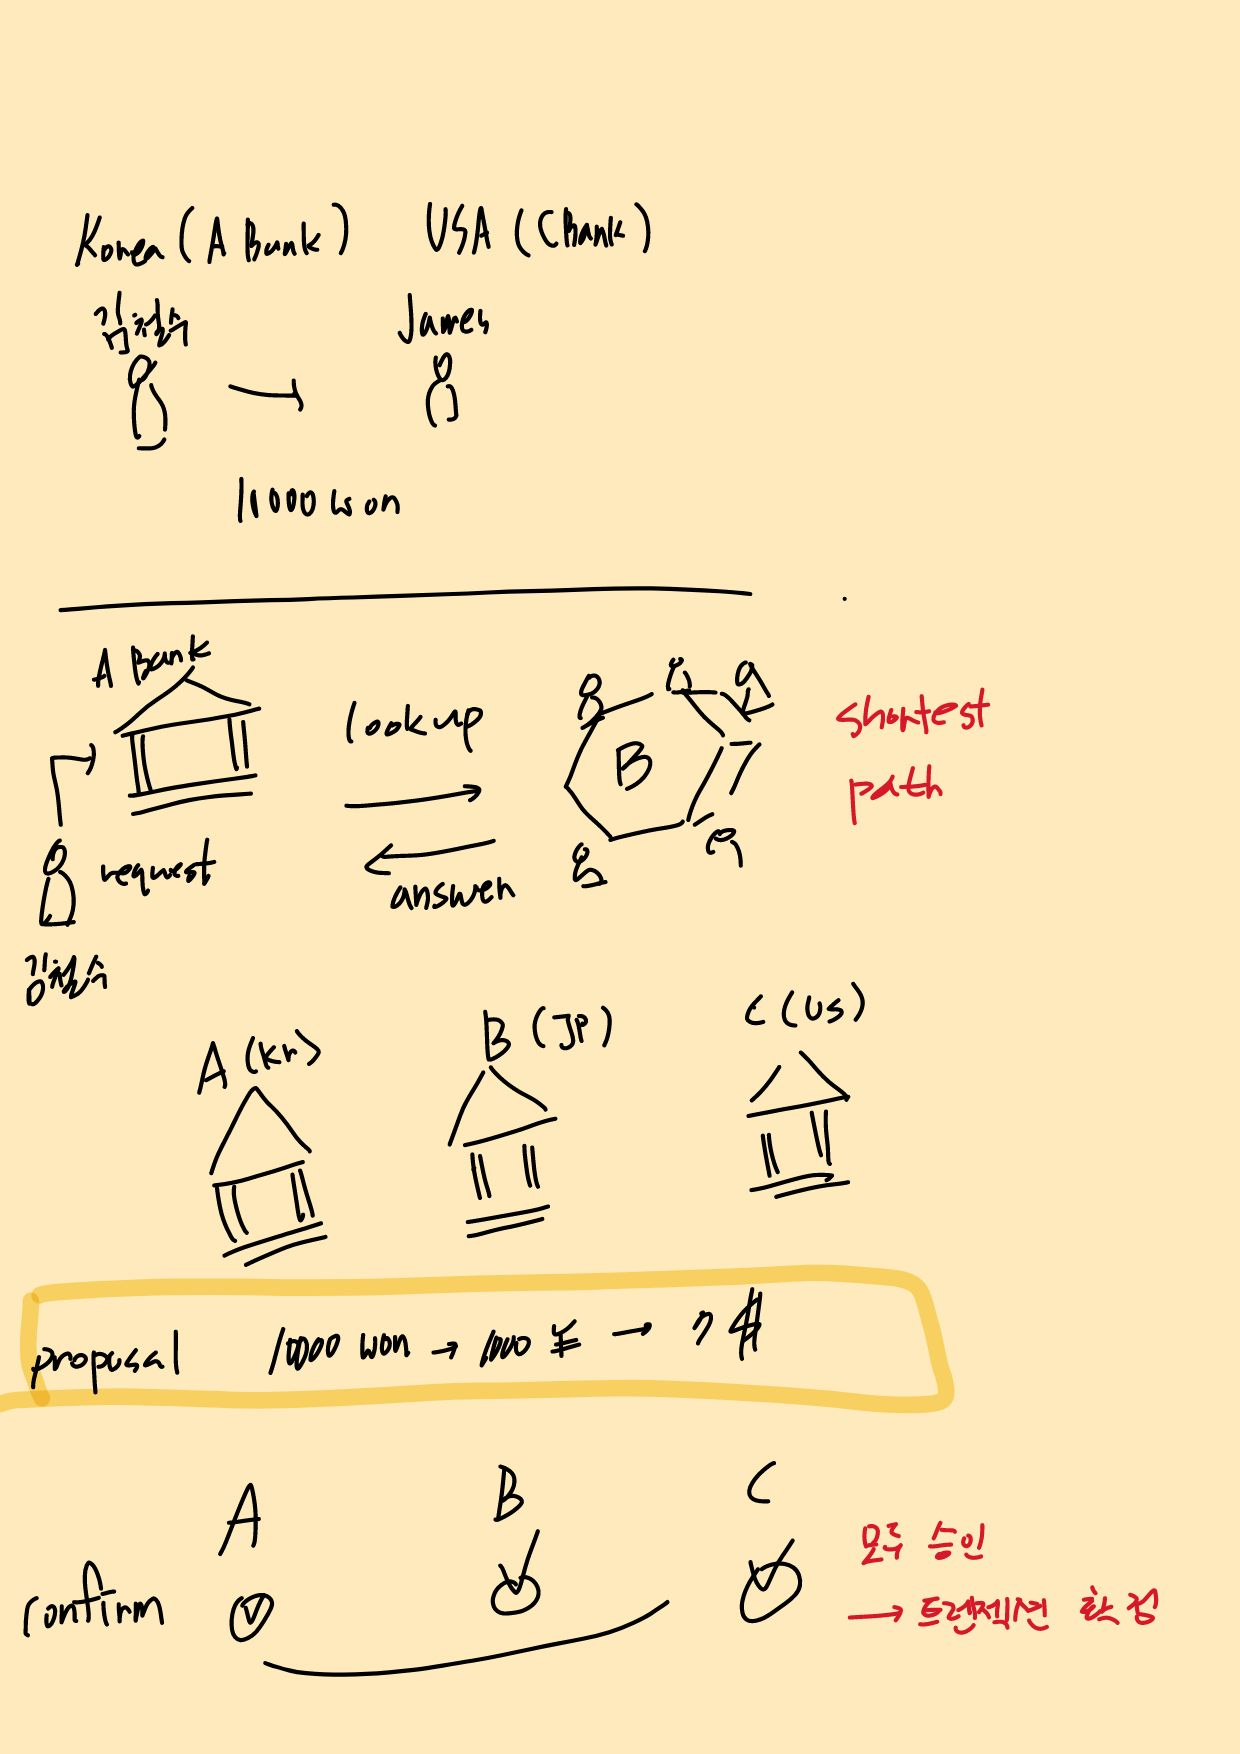 Korea (A Bank) USA (C Bank)
김철수 James
11000 won
A Bank
lookup
B
shortest
path
request
answer
김철수
A (kr) B (JP) C (US)
proposal 10000 won → 1000 ¥ → 7 $
A B C
confirm
모두 승인
→ 트랜젝션 확정